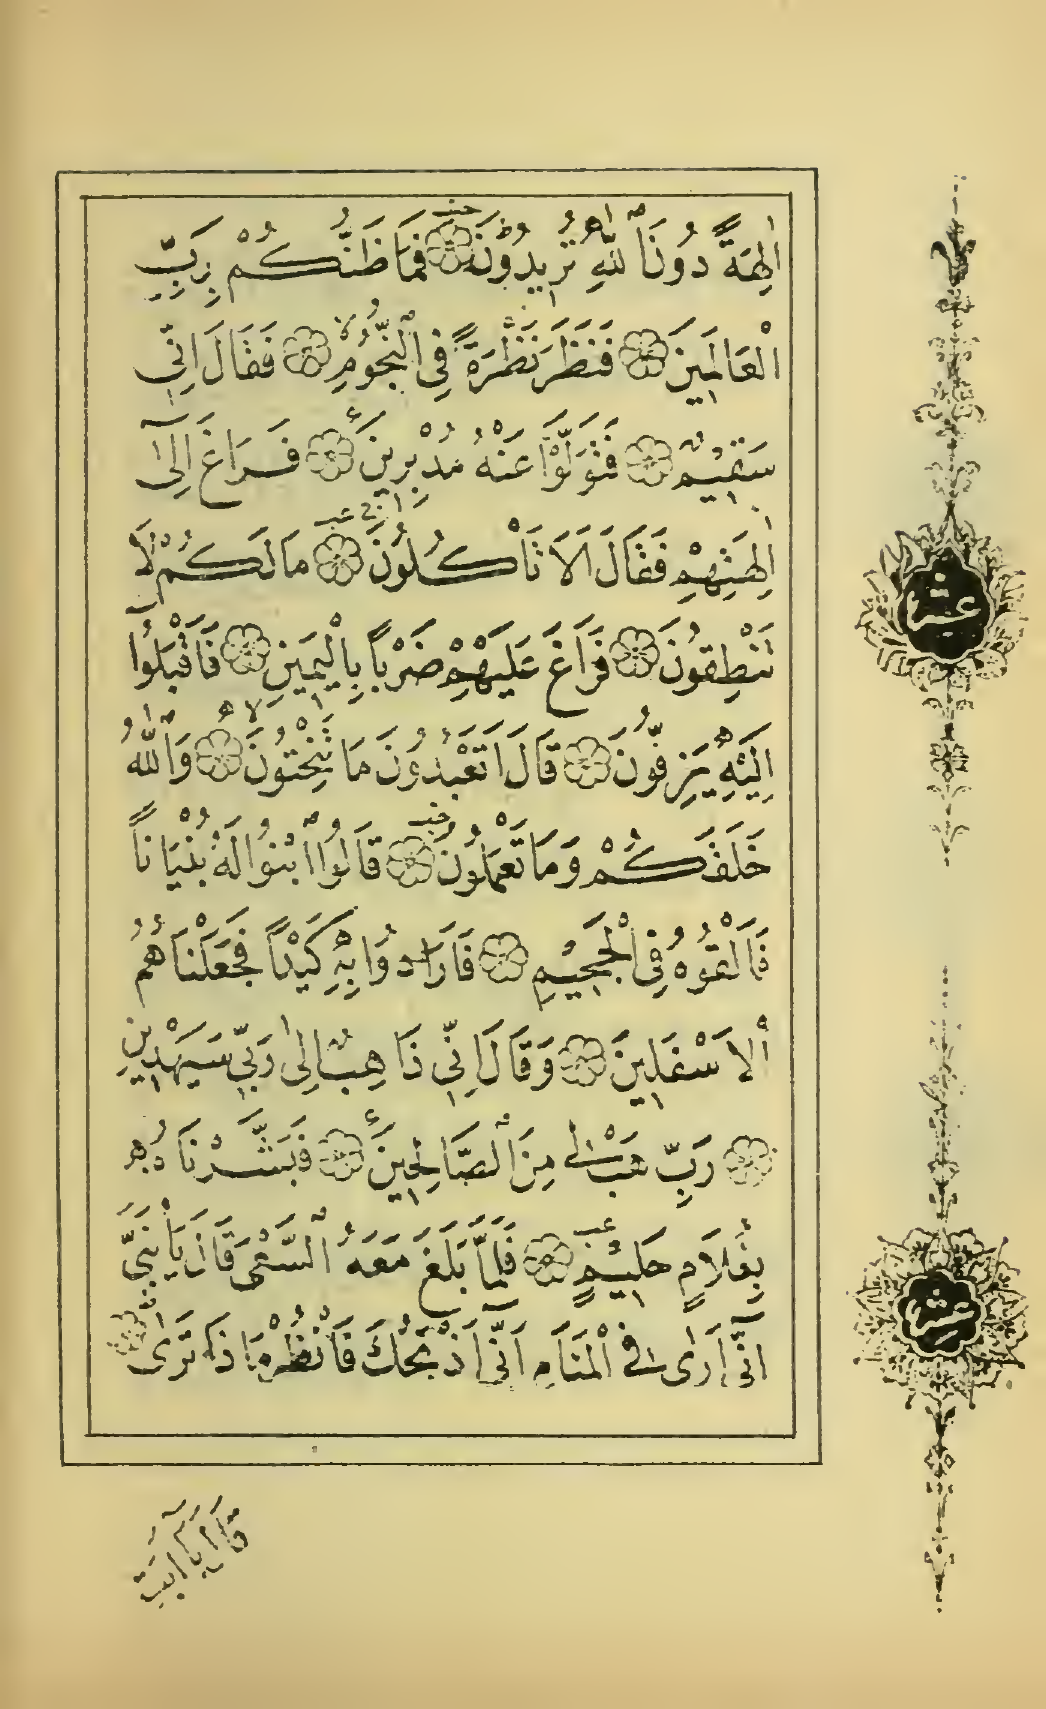 اٰلِهَةً دُونَ اللّٰهِ تُرِيدُونَ ۞ فَمَا ظَنُّكُمْ بِرَبِّ
الْعَالَمِينَ ۞ فَنَظَرَ نَظْرَةً فِي النُّجُومِ ۞ فَقَالَ اِنِّي
سَقِيمٌ ۞ فَتَوَلَّوْا عَنْهُ مُدْبِرِينَ ۞ فَرَاغَ اِلٰٓى
اٰلِهَتِهِمْ فَقَالَ اَلَا تَاْكُلُونَ ۞ مَا لَكُمْ لَا
تَنْطِقُونَ ۞ فَرَاغَ عَلَيْهِمْ ضَرْبًا بِالْيَمِينِ ۞ فَاَقْبَلُٓوا
اِلَيْهِ يَزِفُّونَ ۞ قَالَ اَتَعْبُدُونَ مَا تَنْحِتُونَ ۞ وَاللّٰهُ
خَلَقَكُمْ وَمَا تَعْمَلُونَ ۞ قَالُوا ابْنُوا لَهُ بُنْيَانًا
فَاَلْقُوهُ فِي الْجَحِيمِ ۞ فَاَرَادُوا بِهِ كَيْدًا فَجَعَلْنَاهُمُ
الْاَسْفَلِينَ ۞ وَقَالَ اِنِّي ذَاهِبٌ اِلٰى رَبِّي سَيَهْدِينِ
۞ رَبِّ هَبْ لِي مِنَ الصَّالِحِينَ ۞ فَبَشَّرْنَاهُ
بِغُلَامٍ حَلِيمٍ ۞ فَلَمَّا بَلَغَ مَعَهُ السَّعْيَ قَالَ يَابُنَيَّ
اِنِّٓي اَرٰى فِي الْمَنَامِ اَنِّٓي اَذْبَحُكَ فَانْظُرْ مَاذَا تَرٰى ۞
قَالَ يَٓا اَبَتِ
عشر
عشر